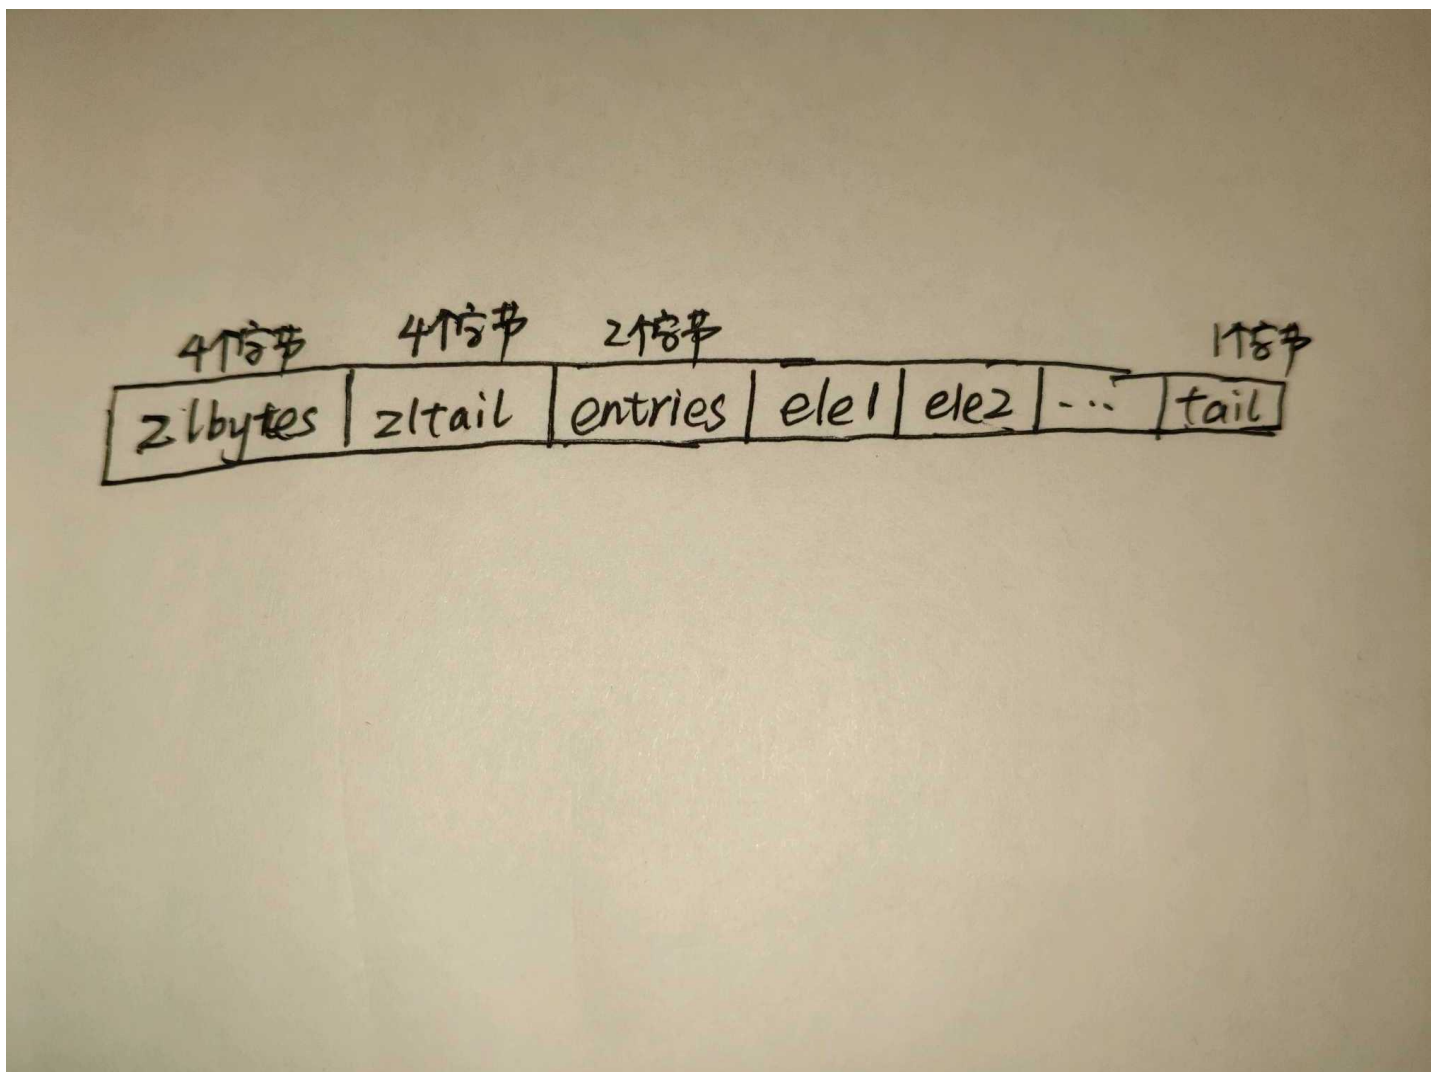 4个字节 4个字节 2个字节 1个字节
zlbytes zltail entries ele1 ele2 ... tail